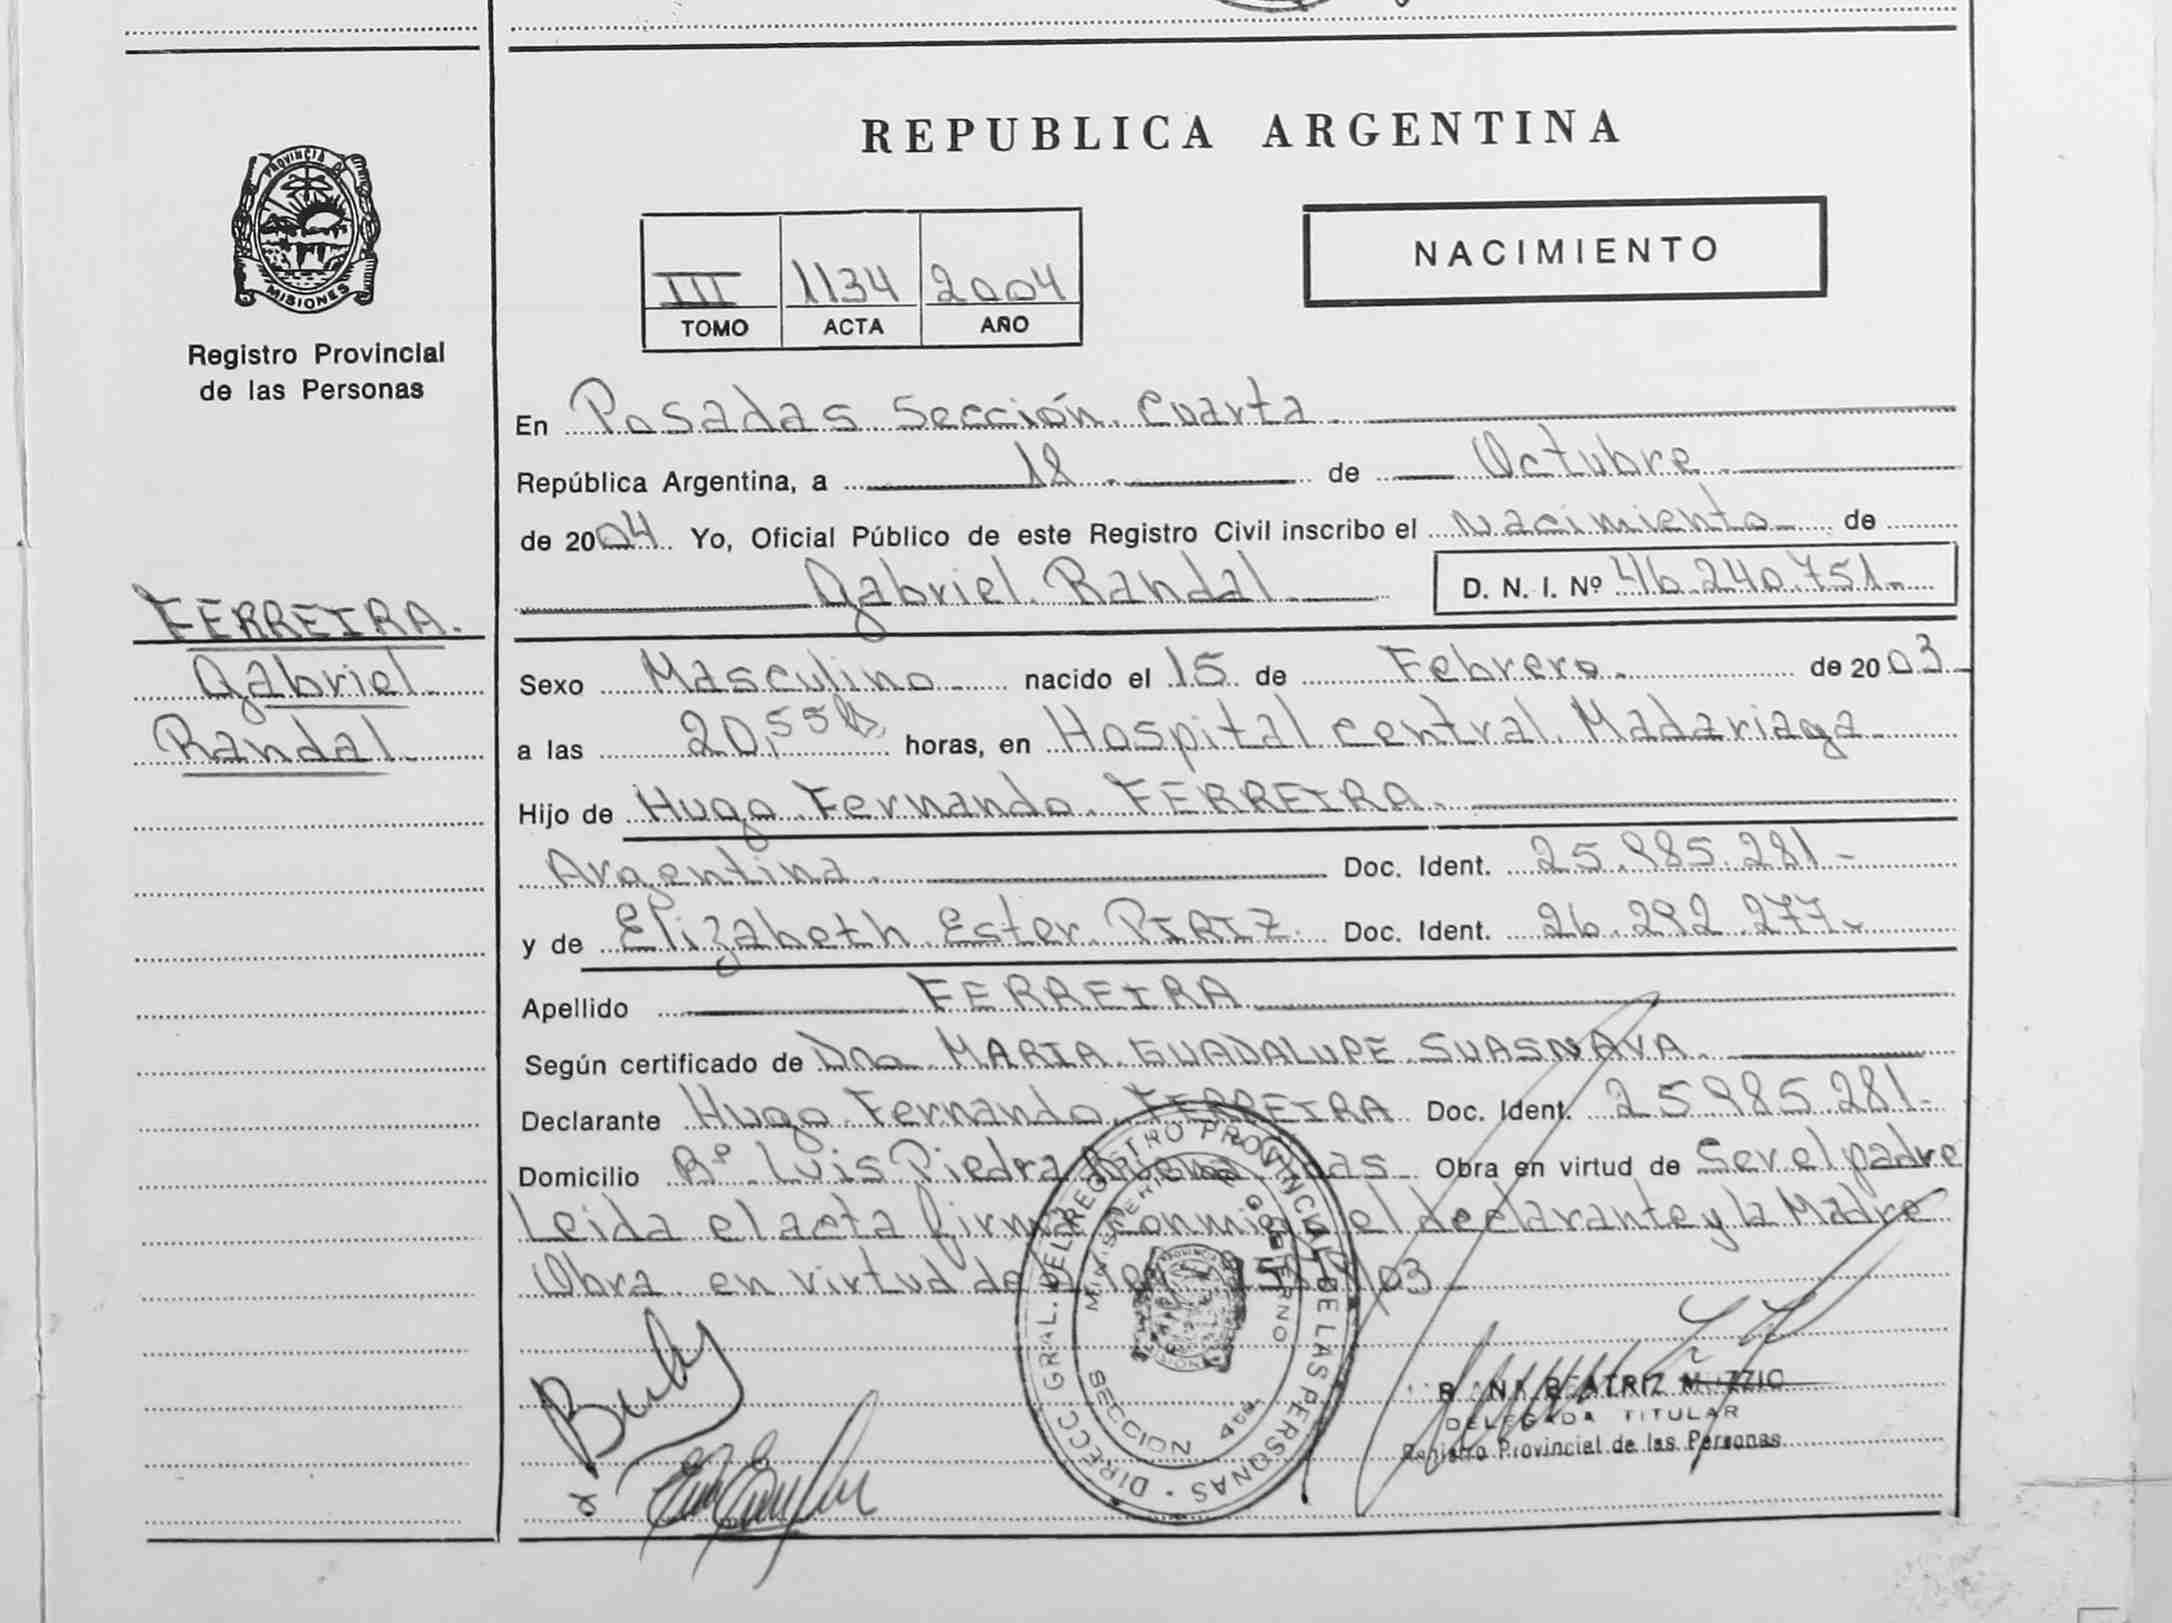 PROVINCIA DE
MISIONES
Registro Provincial
de las Personas
FERREIRA.
Gabriel
Randal
REPUBLICA ARGENTINA
NACIMIENTO
III 1134 2004
TOMO ACTA AÑO
En Posadas Sección Cuarta
República Argentina, a 18 de Octubre
de 2004 Yo, Oficial Público de este Registro Civil inscribo el Nacimiento de
Gabriel Randal D. N. I. Nº 46.240.751.-
Sexo Masculino nacido el 15 de Febrero de 2003
a las 20,55 hs horas, en Hospital central Madariaga
Hijo de Hugo Fernando FERREIRA
Argentina Doc. Ident. 25.985.281-
y de Elizabeth Ester PIRIZ Doc. Ident. 26.292.277.-
Apellido FERREIRA
Según certificado de Dra MARIA GUADALUPE SUASNAVA
Declarante Hugo Fernando FERREIRA Doc. Ident. 25985.281-
Domicilio Bº Luis Piedra Buena Obra en virtud de Ser el padre
Leida el acta firma conmigo el declarante y la Madre
Obra en virtud de 03
DIRECC. GRAL. DEL REGISTRO PROVINCIAL DE LAS PERSONAS
MINISTERIO DE GOBIERNO
SECCION 4ta
BEATRIZ MUZZIO
DELEGADA TITULAR
Registro Provincial de las Personas